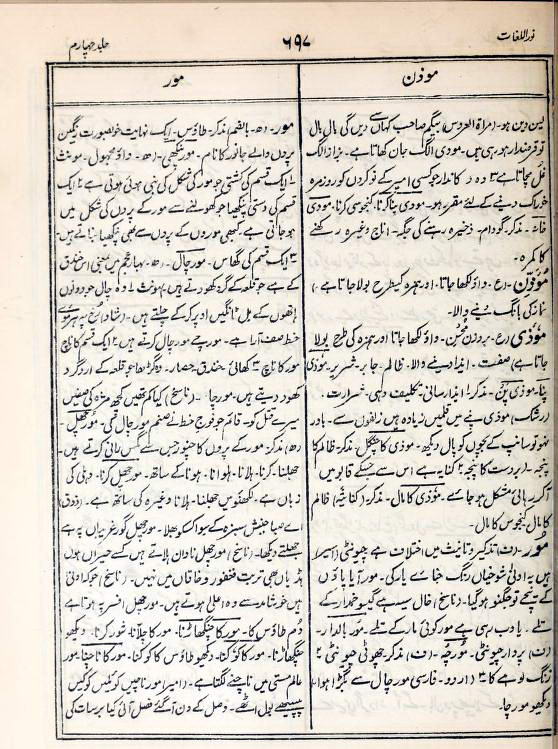 نور اللغات
۶۹۷
جلد چہارم
موذن
مور
لین دین ہو۔ (مراۃ العروس) بیگم صاحب کہاں سے دیں گی بال بال
تو قرضدار ہو رہی ہیں۔ مودی الگ جان کھاتا ہے۔ بزاز الگ
غل مچاتا ہے ۳ وہ دکاندار جو کسی امیر کے نوکروں کو روزمرہ
خوراک دینے کے لئے مقرر ہو۔ مودی پنا کرنا۔ کنجوسی کرنا۔ مودی
خانہ۔ مذکر۔ گودام۔ ذخیرہ رہنے کی جگہ۔ اناج وغیرہ رکھنے
کا کمرہ۔
مؤذن۔ (ع۔ واؤ لکھا جاتا۔ اور ہمزہ کیطرح بولا جاتا ہے۔)
نماز کی بانگ دینے والا۔
موذی (ع۔ بروزن محسن۔ واؤ لکھا جاتا اور ہمزہ کی طرح بولا
جاتا ہے) صفت۔ ایذا دینے والا۔ ظالم۔ جابر۔ شریر۔ موذی
پنا۔ موذی پن۔ مذکر۔ ایذا رسانی۔ تکلیف دہی۔ شرارت۔
(رشک) موذی پنے میں فلیں زیادہ ہیں زلفوں سے۔ باور
نہو تو سانپ کے بچوں کو پال دیکھ۔ موذی کا چنگل۔ مذکر۔ ظالم کا
پنجہ۔ زبردست کا پنجہ۔ کنایہ ہے اس سے جسکے قابو میں
آکر رہائی مشکل ہو جائے۔ موذی کا مال۔ مذکر۔ (کنایۃً) ظالم
کا مال۔ کنجوس کا مال۔
مور۔ (ف) تذکیر و تانیث میں اختلاف ہے چیونٹی (امیر)
ہیں یہ ادنیٰ شوخیاں رنگ حنائے یار کی۔ مور آیا پاؤں
کے نیچے تو بھنگو ہو گیا۔ (ناسخ) خال سیہ ہے گیسو خمدار کے
تلے۔ یا دب رہی ہے مور کوئی مار کے تلے۔ مور بالدار۔
(ف) پردار چیونٹی۔ مورچہ۔ (ف) مذکر۔ چھوٹی چیونٹی ۲
زنگ لوہے کا ۳ (اردو۔ فارسی مورچال سے بگڑا ہوا)
دیکھو مورچا۔
مور۔ (ھ۔ بالضم) مذکر۔ طاؤس۔ ایک نہایت خوبصورت رنگین
پروں والے جانور کا نام۔ مور پنکھی۔ (ھ۔ واؤ مجہول۔ مونث
۱ ایک قسم کی کشتی جو مور کی شکل کی بنی ہوئی ہوتی ہے ۲ ایک
قسم کی دستی پنکھیا جو کھولنے سے مور کے پروں کی شکل میں
ہو جاتی ہے۔ کبھی موروں کے پروں سے بھی پنکھیا بناتے ہیں۔
۳ ایک قسم کی گھاس۔ مورچال۔ (ھ۔ بہار عجم میں بمعنی اس خندق
کے ہے جو قلعہ کے گرد کھودتے ہیں) مونث ۱ وہ چال جو دونوں
ہاتھوں کے بل ٹانگیں اوپر کرکے چلتے ہیں۔
خط صف آرا ہے۔ مورپے مورچال کرتے ہیں ۲ ایک قسم کا ناچ
مور کا ناچ ۳ کھائی۔ خندق۔ حصار۔ وہ گڑھا جو قلعہ کے ارد گرد
کھود دیتے ہیں۔ مورچا۔ (ناسخ) کیا کم تھیں کچھ مژہ کی صفیں
میرے قتل کو۔ قائم جو فوج خط نے صنم مورچال کی۔ مورچھل۔
(ھ) مذکر۔ مور کے پروں کا چنور جس سے مگس رانی کرتے ہیں۔
جھلنا۔ کرنا۔ ہلانا۔ ہلوانا۔ ہونا کے ساتھ۔ مورچھل کرنا۔ دہلی کی
زبان ہے۔ لکھنؤ میں جھلنا۔ ہلانا وغیرہ کی ساتھ ہے۔ (ذوق)
اے صبا جنبش سبزہ کے سوا کس کو بھلا۔ مورچھل گور غریباں پہ ہے
جھلتے دیکھا۔ (ناسخ) مورچھل ناداں ہلاتے ہیں کسے حیراں ہوں
ہڈیاں بھی تربت فغفور و خاقاں میں نہیں۔ (ناسخ) جو کہ ادنیٰ
ہیں خوشامد سے وہ اعلیٰ ہوتے ہیں۔ مورچھل افسر پہ ہوتا ہے
دُم طاؤس کا۔ مور کا چنگھاڑنا۔ مور کا چلّانا۔ شور کرنا۔ دیکھو
چنگھاڑنا۔ مور کا کوکنا۔ دیکھو طاؤس کا کوکنا۔ مور کا ناچنا۔ مور
عالم مستی میں ناچنے لگتا ہے۔ (امیر) مور ناچیں کوکلیں کوکیں
پپیہے بول اٹھے۔ وصل کے دن آگئے فصل آئی کیا برسات کی